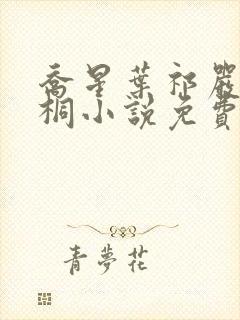 喬星葉祁嚴
桐小說免費
青夢花